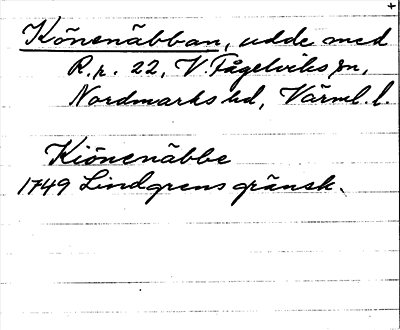 Könenäbban, udde med
R.r. 22, V. Fågelviks sn,
Nordmarks hd, Värml. l.
Kiönenäbbe
1749 Lindgrens gränsk.